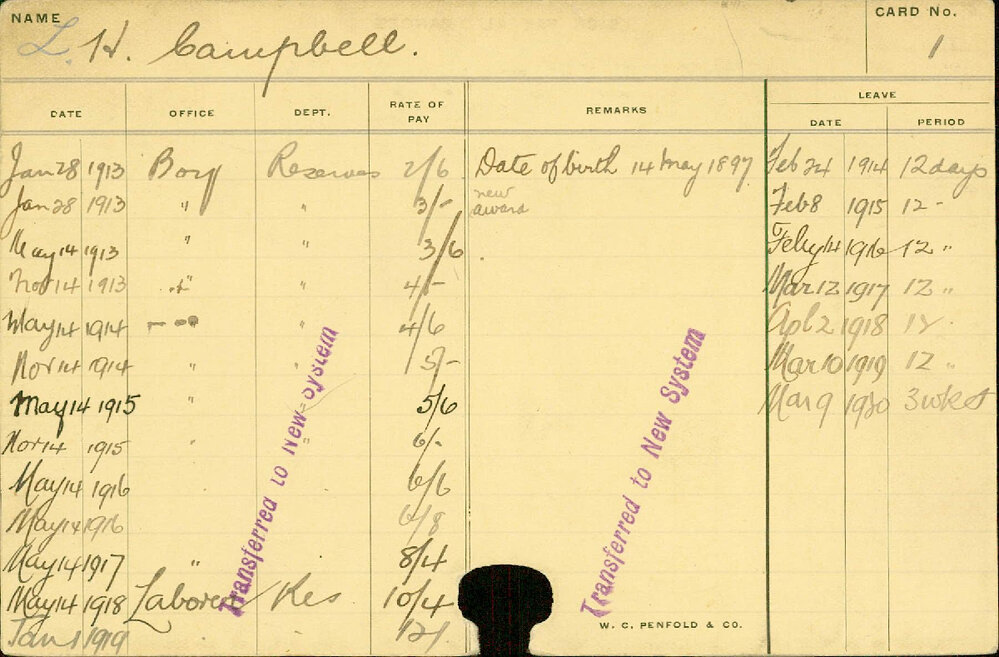 NAME CARD No.
L. H. Campbell. 1
DATE OFFICE DEPT. RATE OF PAY REMARKS LEAVE
DATE PERIOD
Jan 28 1913 Boy Reserves 2/6 Date of birth 14 May 1897 Feb 24 1914 12 days
Jan 28 1913 " " 3/- new award Feb 8 1915 12 -
May 14 1913 " " 3/6 Feby 14 1916 12 "
Nov 14 1913 " " 4/- Mar 12 1917 12 "
May 14 1914 " 4/6 Apl 2 1918 12
Nov 14 1914 " " 5/- Mar 10 1919 12 "
May 14 1915 " " 5/6 Mar 9 1920 3 wks
Nov 14 1915 " " 6/-
May 14 1916 6/6
May 14 1916 6/8
May 14 1917 " 8/4
May 14 1918 Laborer Res 10/4
Jan 1 1919 12/-
Transferred to New System
Transferred to New System
W. C. PENFOLD & CO.